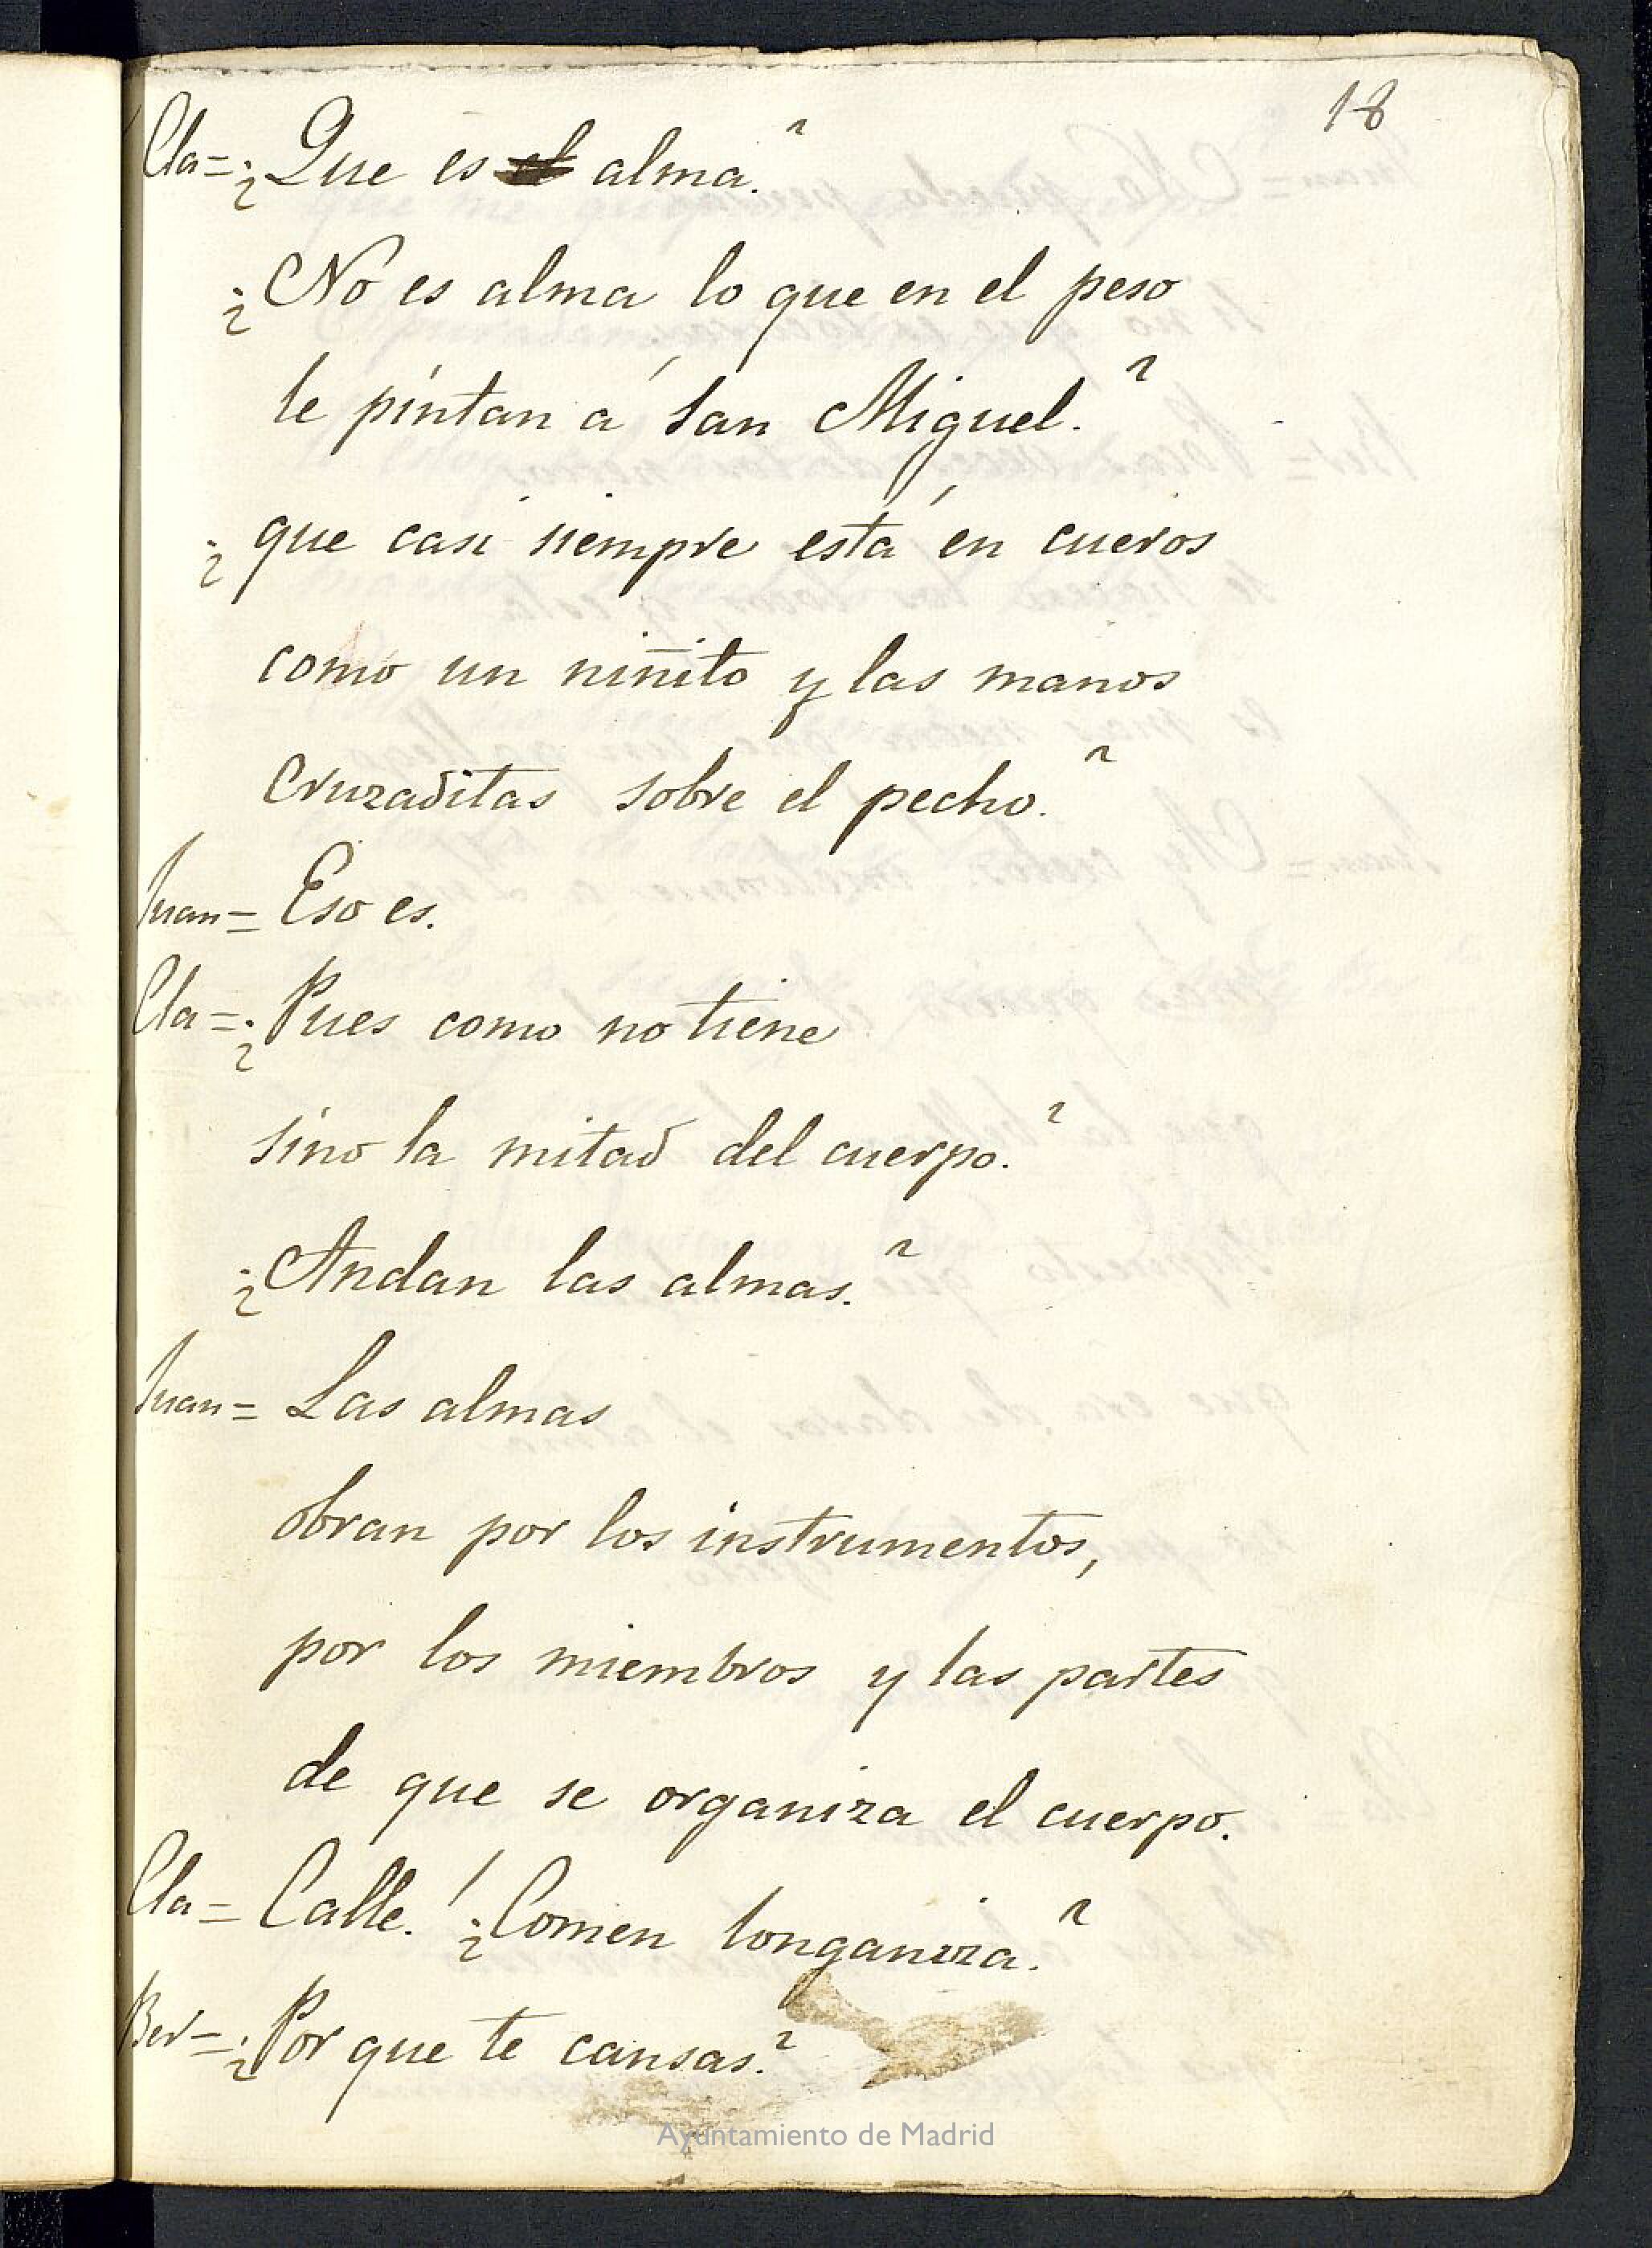 18
Cla=¿Que es el alma.?
¿No es alma lo que en el peso
le pintan á San Miguel.?
¿que casi siempre está en cueros
como un niñito y las manos
cruzaditas sobre el pecho.?
Juan= Eso es.
Cla=¿Pues como no tiene
sino la mitad del cuerpo.?
¿Andan las almas.?
Juan= Las almas
obran por los instrumentos,
por los miembros y las partes
de que se organiza el cuerpo.
Cla= Calle.! ¿Comen longaniza.?
Ber=¿Por que te cansas.?
Ayuntamiento de Madrid